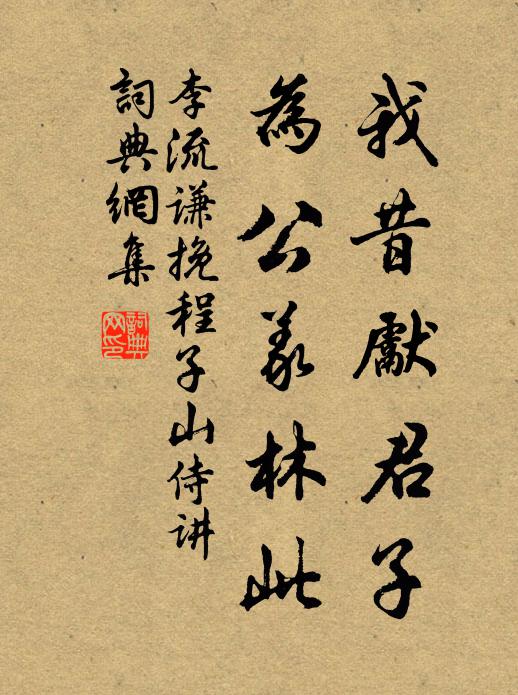 我昔獻君子
為公羕林此
李流谦挽程子山侍讲
詞典網集
詞典
网印